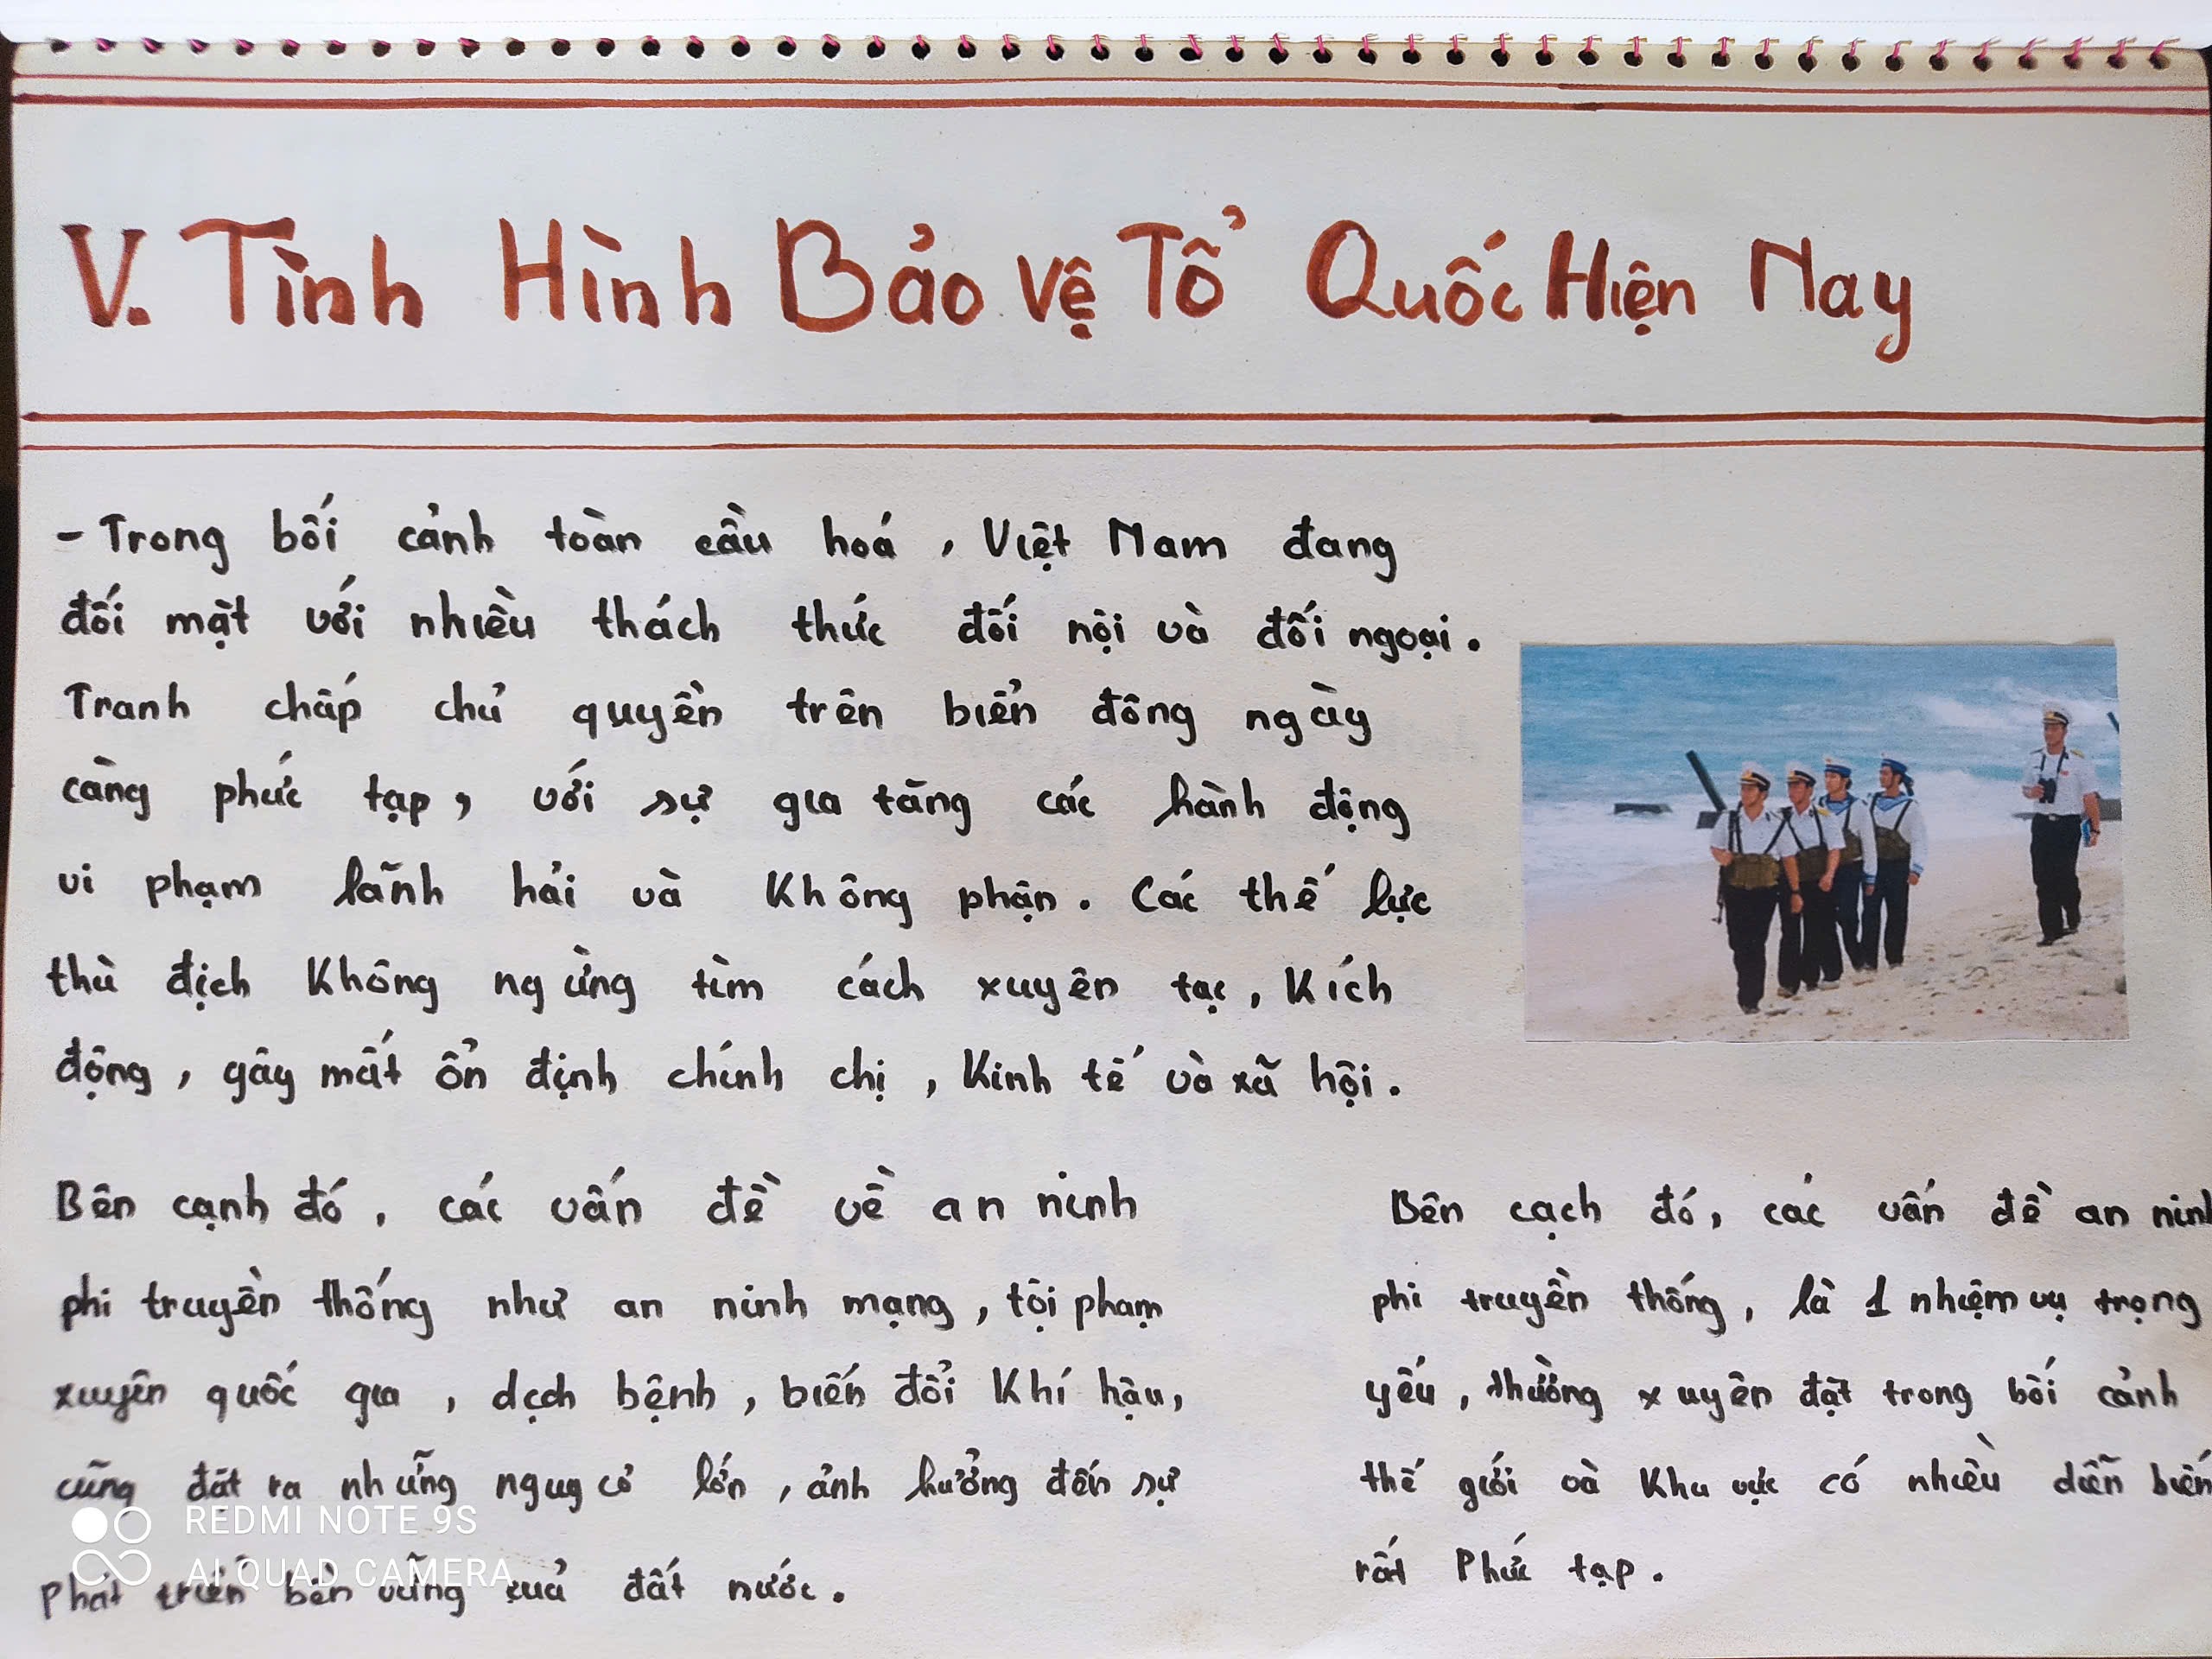 V. Tình Hình Bảo Vệ Tổ Quốc Hiện Nay
- Trong bối cảnh toàn cầu hoá, Việt Nam đang
đối mặt với nhiều thách thức đối nội và đối ngoại.
Tranh chấp chủ quyền trên biển đông ngày
càng phức tạp, với sự gia tăng các hành động
vi phạm lãnh hải và Không phận. Các thế lực
thù địch Không ngừng tìm cách xuyên tạc, Kích
động, gây mất ổn định chính chị, Kinh tế và xã hội.
Bên cạnh đó, các vấn đề về an ninh
phi truyền thống như an ninh mạng, tội phạm
xuyên quốc gia, dịch bệnh, biến đổi Khí hậu,
cũng đặt ra những nguy cơ lớn, ảnh hưởng đến sự
phát triển bền vững của đất nước.
Bên cạch đó, các vấn đề an ninh
phi truyền thống, là 1 nhiệm vụ trọng
yếu, thường xuyên đặt trong bối cảnh
thế giới và Khu vực có nhiều diễn biến
rất Phức tạp.
REDMI NOTE 9S
AI QUAD CAMERA